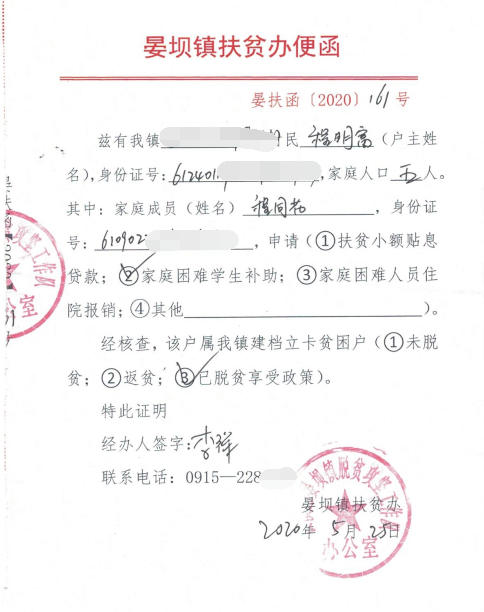 晏坝镇扶贫办便函
晏扶函〔2020〕161号
兹有我镇 民程明富(户主姓
名),身份证号:612401 ,家庭人口五人。
其中:家庭成员(姓名)程同书,身份证
号:610902 ,申请(①扶贫小额贴息
贷款;②家庭困难学生补助;③家庭困难人员住
院报销;④其他 )。
经核查,该户属我镇建档立卡贫困户(①未脱
贫;②返贫;③已脱贫享受政策)。
特此证明
经办人签字:李祥
联系电话:0915—228
晏坝镇扶贫办
2020年5月25日
坝镇脱贫攻坚工作队
办公室
攻坚工作队
公室